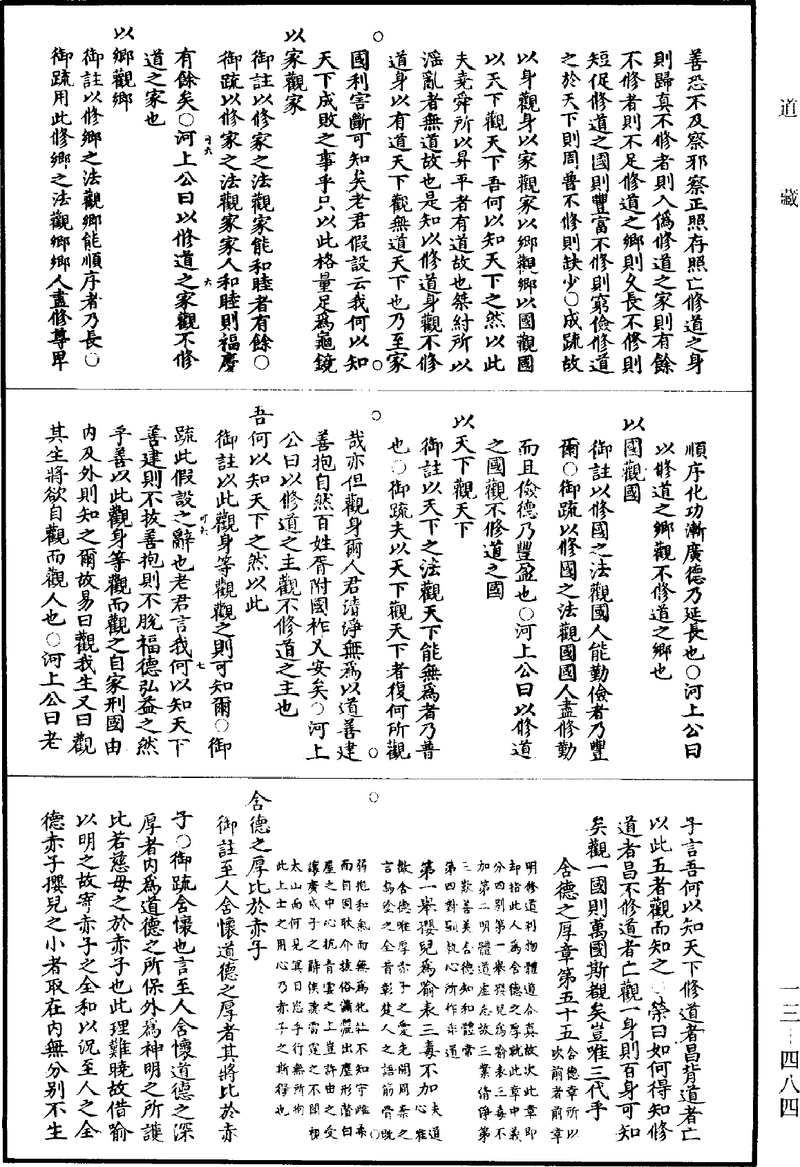 道藏
善恐不及察邪察正照存照亡修道之身
則歸真不修者則入僞修道之家則有餘
不修者則不足修道之鄉則久長不修則
短促修道之國則豐富不修則窮儉修道
之於天下則周普不修則缺少○成疏故
以身觀身以家觀家以鄉觀鄉以國觀國
以天下觀天下吾何以知天下之然以此
夫堯舜所以昇平者有道故也桀紂所以
滛亂者無道故也是知以修道身觀不修
道身以有道天下觀無道天下也乃至家
國利害斷可知矣老君假設云我何以知
天下成敗之事乎只以此格量足爲龜鏡
以家觀家
御註以修家之法觀家能和睦者有餘○
御疏以修家之法觀家家人和睦則福慶
有餘矣○河上公曰以修道之家觀不修
道之家也
以鄉觀鄉
御註以修鄉之法觀鄉能順序者乃長○
御疏用此修鄉之法觀鄉鄉人盡修尊卑
順序化功漸廣德乃延長也○河上公曰
以修道之鄉觀不修道之鄉也
以國觀國
御註以修國之法觀國人能勤儉者乃豐
爾○御疏以修國之法觀國國人盡修勤
而且儉德乃豐盈也○河上公曰以修道
之國觀不修道之國
以天下觀天下
御註以天下之法觀天下能無爲者乃普
也○御疏夫以天下觀天下者復何所觀
哉亦但觀身爾人君清淨無爲以道善建
善抱自然百姓胥附國祚乂安矣○河上
公曰以修道之主觀不修道之主也
吾何以知天下之然以此
御註以此觀身等觀觀之則可知爾○御
疏此假設之辭也老君言我何以知天下
善建則不拔善抱則不脫福德弘益之然
乎善以此觀身等觀而觀之自家刑國由
內及外則知之爾故易曰觀我生又曰觀
其生將欲自觀而觀人也○河上公曰老
子言吾何以知天下修道者昌背道者亡
以此五者觀而知之○榮曰如何得知修
道者昌不修道者亡觀一身則百身可知
矣觀一國則萬國斯覩矣豈唯三代乎
含德之厚章第五十五 含德章所以次前者前章
明修道利物體道合真故次此章即
却指此人爲含德之厚就此章中義
分四別第一舉嬰兒爲喻表三毒不
加第二明體道虛忘故三業清淨第
三歎善美含德知和體常
第四對顯執心所作乖道
第一舉嬰兒爲喻表三毒不加 夫道
之
言爲
弱抱和氣而無爲
而自固耿介拔俗瀟灑出塵形
屋之中心抗青雲之上豈許由之受
讓廣成子之
太山而何見冥目恣手行無所拘
此上士之用心乃赤子之斯得也
含德之厚比於赤子
御註至人含懷道德之厚者其將比於赤
子○御疏含懷也言至人含懷道德之深
厚者內爲道德之所保外爲神明之所護
比若慈母之於赤子也此理難曉故借喻
以明之故寄赤子之全和以況至人之全
德赤子嬰兒之小者取在內無分別不生
一三—四八四